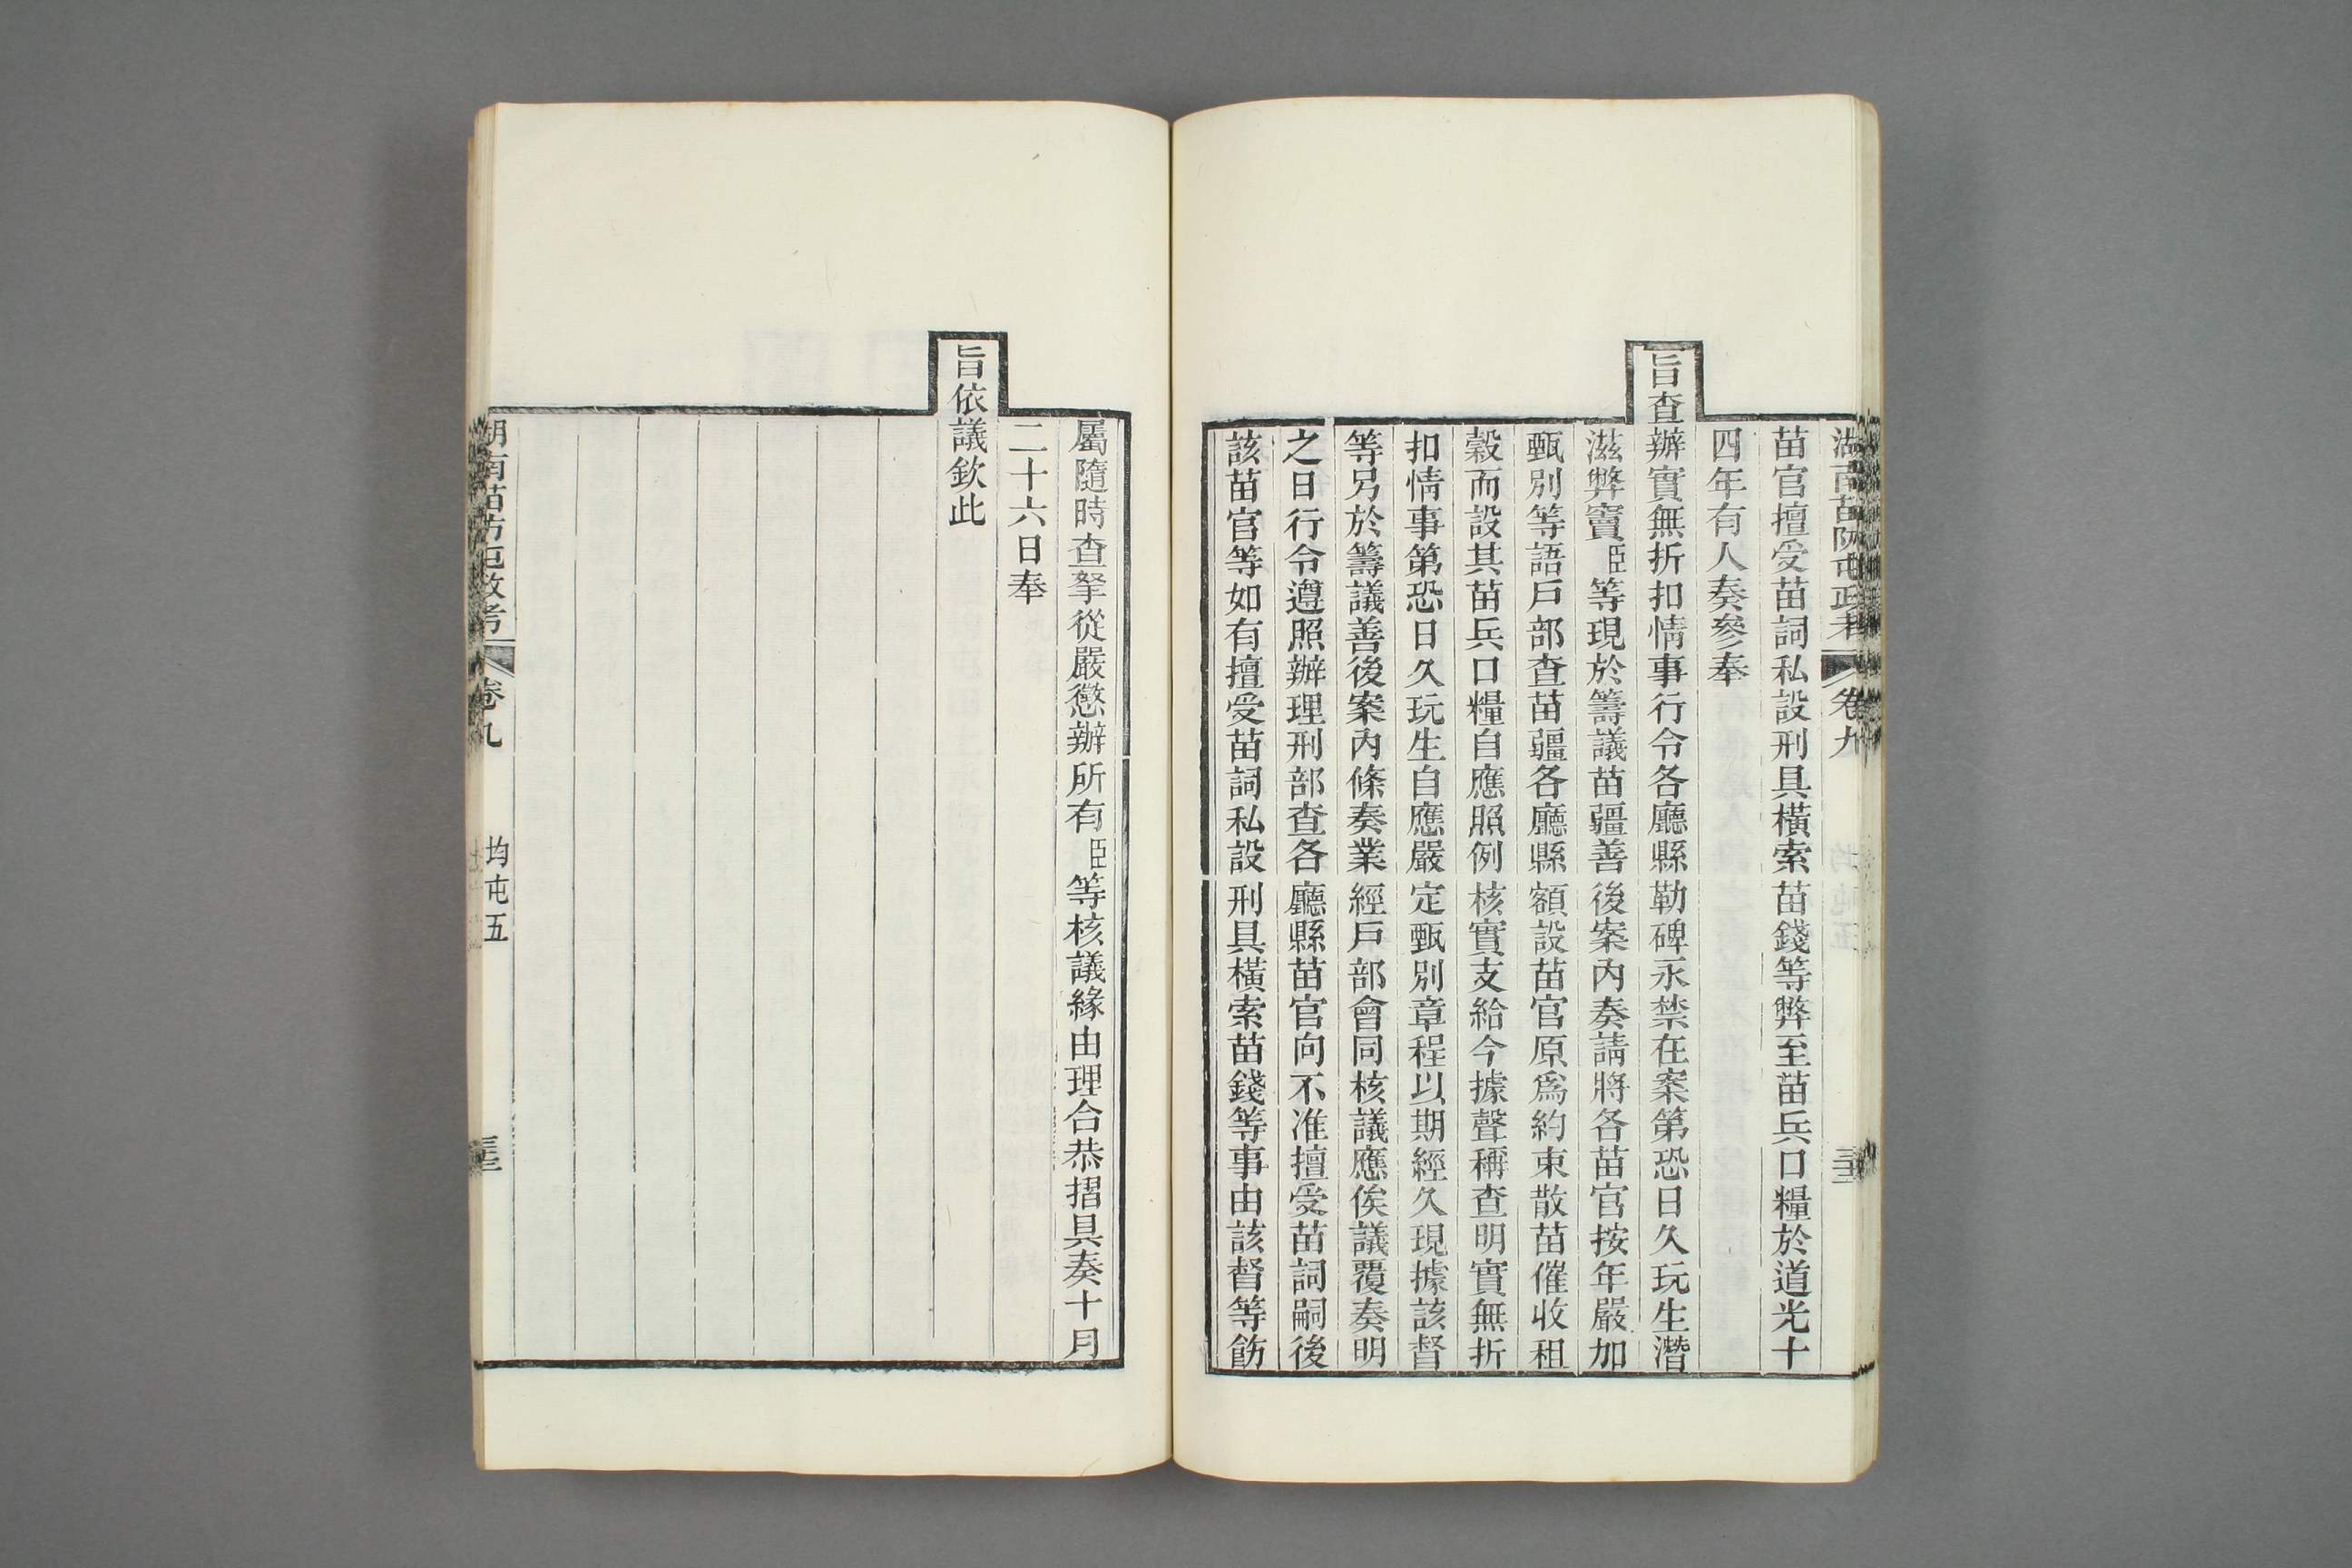 湖南苗防屯政考 卷九
苗官擅受苗詞私設刑具橫索苗錢等弊至苗兵口糧於道光十
四年有人奏參奉
旨查辦實無折扣情事行令各廳縣勒碑永禁在案第恐日久玩生潛
滋弊竇臣等現於籌議苗疆善後案內奏請將各苗官按年嚴加
甄別等語戶部查苗疆各廳縣額設苗官原爲約束散苗催收租
穀而設其苗兵口糧自應照例核實支給今據聲稱查明實無折
扣情事第恐日久玩生自應嚴定甄別章程以期經久現據該督
等另於籌議善後案內條奏業經戶部會同核議應俟議覆奏明
之日行令遵照辦理刑部查各廳縣苗官向不准擅受苗詞嗣後
該苗官等如有擅受苗詞私設刑具橫索苗錢等事由該督等飭
屬隨時查拏從嚴懲辦所有臣等核議緣由理合恭摺具奏十月
二十六日奉
旨依議欽此
湖南苗防屯政考 卷九 均屯五